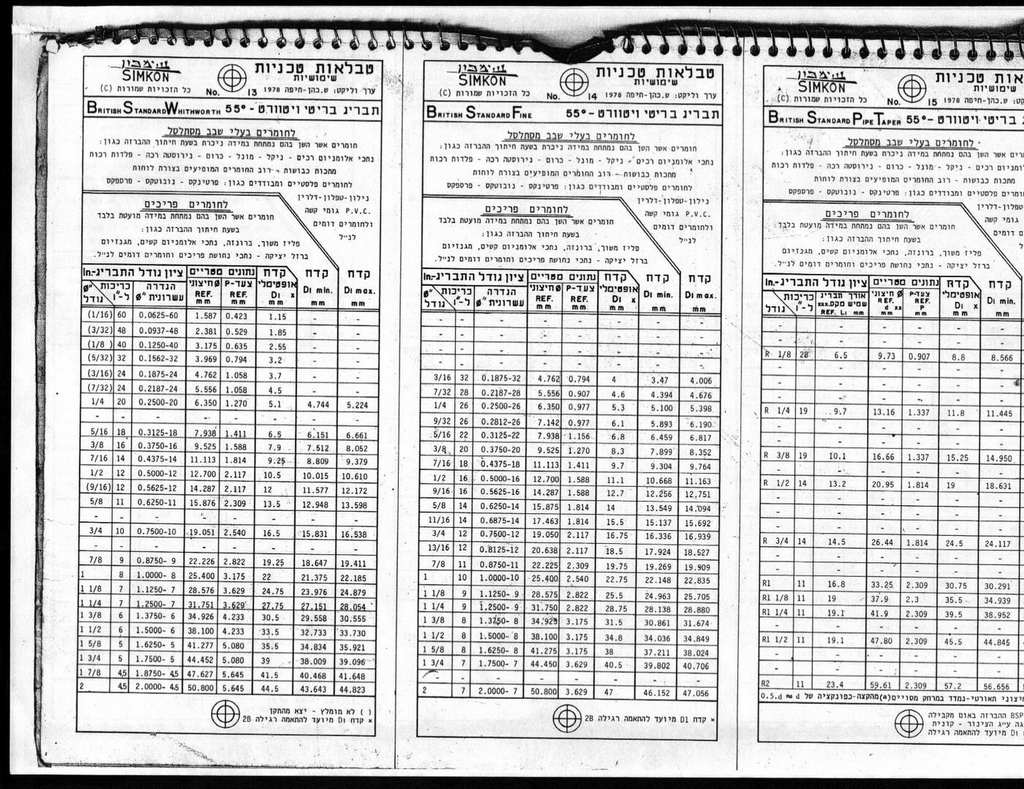 שימכון
SIMKON
טבלאות טכניות
שימושיות
No. 13
ערך וליקט: ש.כהן-חיפה 1978
כל הזכויות שמורות (C)
BRITISH STANDARD WHITWORTH תבריג בריטי ויטוורט-55°
לחומרים בעלי שבב מסתלסל
חומרים אשר השן בהם נמתחת במידה ניכרת בשעת חיתוך ההברזה כגון:
נתכי אלומניום רכים - ניקל - מונל - כרום - נירוסטה רכה - פלדות רכות
מתכות כבושות - רוב החומרים המופיעים בצורת לוחות
לחומרים פלסטיים ומבודדים כגון: פרטינקס - נובוטקס - פרספקס
לחומרים פריכים
חומרים אשר השן בהם נמתחת במידה מועטת בלבד
בשעת חיתוך ההברזה כגון:
פליז משוך, ברונזה, נתכי אלומניום קשים, מגנזיום
ברזל יציקה - נתכי נחושת פריכים וחומרים דומים לנ״ל.
נילון-טפלון-דלרין
P.V.C. גומי קשה
ולחומרים דומים
לנ״ל
ציון גודל התבריג-In. נתונים מטריים קדח קדח קדח
Ø" גודל כריכות ל-1" הגדרה עשרונית Ø" חיצוני Ø REF. mm צעד-P REF. mm אופטימלי D1 x mm D1 min. mm D1 max. mm
(1/16) 60 0.0625-60 1.587 0.423 1.15 - -
(3/32) 48 0.0937-48 2.381 0.529 1.85 - -
(1/8) 40 0.1250-40 3.175 0.635 2.55 - -
(5/32) 32 0.1562-32 3.969 0.794 3.2 - -
(3/16) 24 0.1875-24 4.762 1.058 3.7 - -
(7/32) 24 0.2187-24 5.556 1.058 4.5 - -
1/4 20 0.2500-20 6.350 1.270 5.1 4.744 5.224
- - - - - - - -
5/16 18 0.3125-18 7.938 1.411 6.5 6.151 6.661
3/8 16 0.3750-16 9.525 1.588 7.9 7.512 8.052
7/16 14 0.4375-14 11.113 1.814 9.25 8.809 9.379
1/2 12 0.5000-12 12.700 2.117 10.5 10.015 10.610
(9/16) 12 0.5625-12 14.287 2.117 12 11.577 12.172
5/8 11 0.6250-11 15.876 2.309 13.5 12.948 13.598
- - - - - - - -
3/4 10 0.7500-10 19.051 2.540 16.5 15.831 16.538
- - - - - - - -
7/8 9 0.8750- 9 22.226 2.822 19.25 18.647 19.411
1 8 1.0000- 8 25.400 3.175 22 21.375 22.185
1 1/8 7 1.1250- 7 28.576 3.629 24.75 23.976 24.879
1 1/4 7 1.2500- 7 31.751 3.629 27.75 27.151 28.054
1 3/8 6 1.3750- 6 34.926 4.233 30.5 29.558 30.555
1 1/2 6 1.5000- 6 38.100 4.233 33.5 32.733 33.730
1 5/8 5 1.6250- 5 41.277 5.080 35.5 34.834 35.921
1 3/4 5 1.7500- 5 44.452 5.080 39 38.009 39.096
1 7/8 4,5 1.8750- 4,5 47.627 5.645 41.5 40.468 41.648
2 4,5 2.0000- 4,5 50.800 5.645 44.5 43.643 44.823
( ) לא מומלץ - יצא מהתקן
x קדח D1 מיועד להתאמה רגילה 2B
שימכון
SIMKON
טבלאות טכניות
שימושיות
No. 14
ערך וליקט: ש.כהן-חיפה 1978
כל הזכויות שמורות (C)
BRITISH STANDARD FINE תבריג בריטי ויטוורט-55°
לחומרים בעלי שבב מסתלסל
חומרים אשר השן בהם נמתחת במידה ניכרת בשעת חיתוך ההברזה כגון:
נתכי אלומניום רכים - ניקל - מונל - כרום - נירוסטה רכה - פלדות רכות
מתכות כבושות - רוב החומרים המופיעים בצורת לוחות
לחומרים פלסטיים ומבודדים כגון: פרטינקס - נובוטקס - פרספקס
לחומרים פריכים
חומרים אשר השן בהם נמתחת במידה מועטת בלבד
בשעת חיתוך ההברזה כגון:
פליז משוך, ברונזה, נתכי אלומניום קשים, מגנזיום
ברזל יציקה - נתכי נחושת פריכים וחומרים דומים לנ״ל.
נילון-טפלון-דלרין
P.V.C. גומי קשה
ולחומרים דומים
לנ״ל
ציון גודל התבריג-In. נתונים מטריים קדח קדח קדח
Ø" גודל כריכות ל-1" הגדרה עשרונית Ø" חיצוני Ø REF. mm צעד-P REF. mm אופטימלי D1 x mm D1 min. mm D1 max. mm
- - - - - - - -
- - - - - - - -
- - - - - - - -
- - - - - - - -
3/16 32 0.1875-32 4.762 0.794 4 3.47 4.006
7/32 28 0.2187-28 5.556 0.907 4.6 4.394 4.676
1/4 26 0.2500-26 6.350 0.977 5.3 5.100 5.398
9/32 26 0.2812-26 7.142 0.977 6.1 5.893 6.190
5/16 22 0.3125-22 7.938 1.156 6.8 6.459 6.817
3/8 20 0.3750-20 9.525 1.270 8.3 7.899 8.352
7/16 18 0.4375-18 11.113 1.411 9.7 9.304 9.764
1/2 16 0.5000-16 12.700 1.588 11.1 10.668 11.163
9/16 16 0.5625-16 14.287 1.588 12.7 12.256 12.751
5/8 14 0.6250-14 15.875 1.814 14 13.549 14.094
11/16 14 0.6875-14 17.463 1.814 15.5 15.137 15.692
3/4 12 0.7500-12 19.050 2.117 16.75 16.336 16.939
13/16 12 0.8125-12 20.638 2.117 18.5 17.924 18.527
7/8 11 0.8750-11 22.225 2.309 19.75 19.269 19.909
1 10 1.0000-10 25.400 2.540 22.75 22.148 22.835
1 1/8 9 1.1250- 9 28.575 2.822 25.5 24.963 25.705
1 1/4 9 1.2500- 9 31.750 2.822 28.75 28.138 28.880
1 3/8 8 1.3750- 8 34.925 3.175 31.5 30.861 31.674
1 1/2 8 1.5000- 8 38.100 3.175 34.8 34.036 34.849
1 5/8 8 1.6250- 8 41.275 3.175 38 37.211 38.024
1 3/4 7 1.7500- 7 44.450 3.629 40.5 39.802 40.706
- - - - - - - -
2 7 2.0000- 7 50.800 3.629 47 46.152 47.056
x קדח D1 מיועד להתאמה רגילה 2B
שימכון
SIMKON
טבלאות
שימושיות
No. 15
ערך וליקט: ש.כהן-חיפה 1978
כל הזכויות שמורות (C)
BRITISH STANDARD PIPE TAPER תבריג בריטי ויטוורט-55°
לחומרים בעלי שבב מסתלסל
חומרים אשר השן בהם נמתחת במידה ניכרת בשעת חיתוך ההברזה
נתכי אלומניום רכים - ניקל - מונל - כרום - נירוסטה רכה - פלדות
מתכות כבושות - רוב החומרים המופיעים בצורת לוחות
לחומרים פלסטיים ומבודדים כגון: פרטינקס - נובוטקס - פרספקס
לחומרים פריכים
חומרים אשר השן בהם נמתחת במידה מועטת בלבד
בשעת חיתוך ההברזה כגון:
פליז משוך, ברונזה, נתכי אלומניום קשים, מגנזיום
ברזל יציקה - נתכי נחושת פריכים וחומרים דומים לנ״ל.
גומי קשה
דומים
לנ״ל
ציון גודל התבריג-In. נתונים מטריים קדח קדח
Ø" גודל כריכות ל-1" אורך תבריג שמיש מקס. xxx REF. L1 mm חיצוני Ø REF. d xx mm צעד-P REF. P mm אופטימלי D1 x mm D1 min. mm
- - - - - - -
- - - - - - -
R 1/8 28 6.5 9.73 0.907 8.8 8.566
- - - - - - -
R 1/4 19 9.7 13.16 1.337 11.8 11.445
- - - - - - -
R 3/8 19 10.1 16.66 1.337 15.25 14.950
- - - - - - -
R 1/2 14 13.2 20.95 1.814 19 18.631
- - - - - - -
R 3/4 14 14.5 26.44 1.814 24.5 24.117
- - - - - - -
R1 11 16.8 33.25 2.309 30.75 30.291
R1 1/8 11 19 37.9 2.3 35.5 34.939
R1 1/4 11 19.1 41.9 2.309 39.5 38.952
- - - - - - -
R1 1/2 11 19.1 47.80 2.309 45.5 44.845
- - - - - - -
R2 11 23.4 59.61 2.309 57.2 56.656
תאורטי-נמדד במרחק מסויים(a)מהקצה-כפונקציה של d ≈ 0.5.d
BSP ההברזה באום מקבילה
ע״ג הצינור - קונית
D1 מיועד להתאמה רגילה